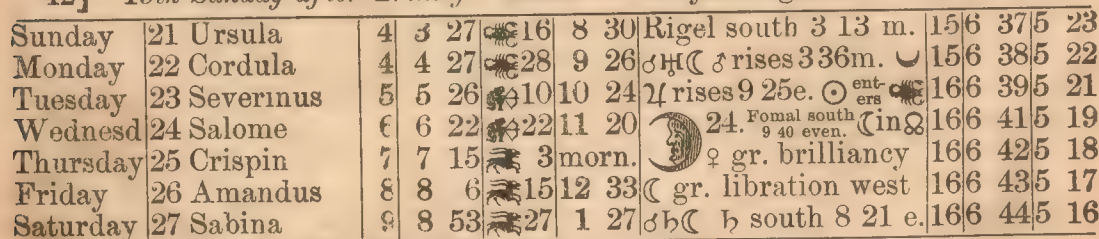 Sunday 21 Ursula 4 3 27 16 8 30 Rigel south 3 13 m. 15 6 37 5 23
Monday 22 Cordula 4 4 27 28 9 26 ☌♅☾ ♂ rises 3 36m. 15 6 38 5 22
Tuesday 23 Severinus 5 5 26 10 10 24 ♃ rises 9 25e. ☉ enters ♏ 16 6 39 5 21
Wednesd 24 Salome 6 6 22 22 11 20 24. Fomal south 9 40 even. ☾ in ☊ 16 6 41 5 19
Thursday 25 Crispin 7 7 15 3 morn. ♀ gr. brilliancy 16 6 42 5 18
Friday 26 Amandus 8 8 6 15 12 33 ☾ gr. libration west 16 6 43 5 17
Saturday 27 Sabina 9 8 53 27 1 27 ☌♄☾ ♄ south 8 21 e. 16 6 44 5 16